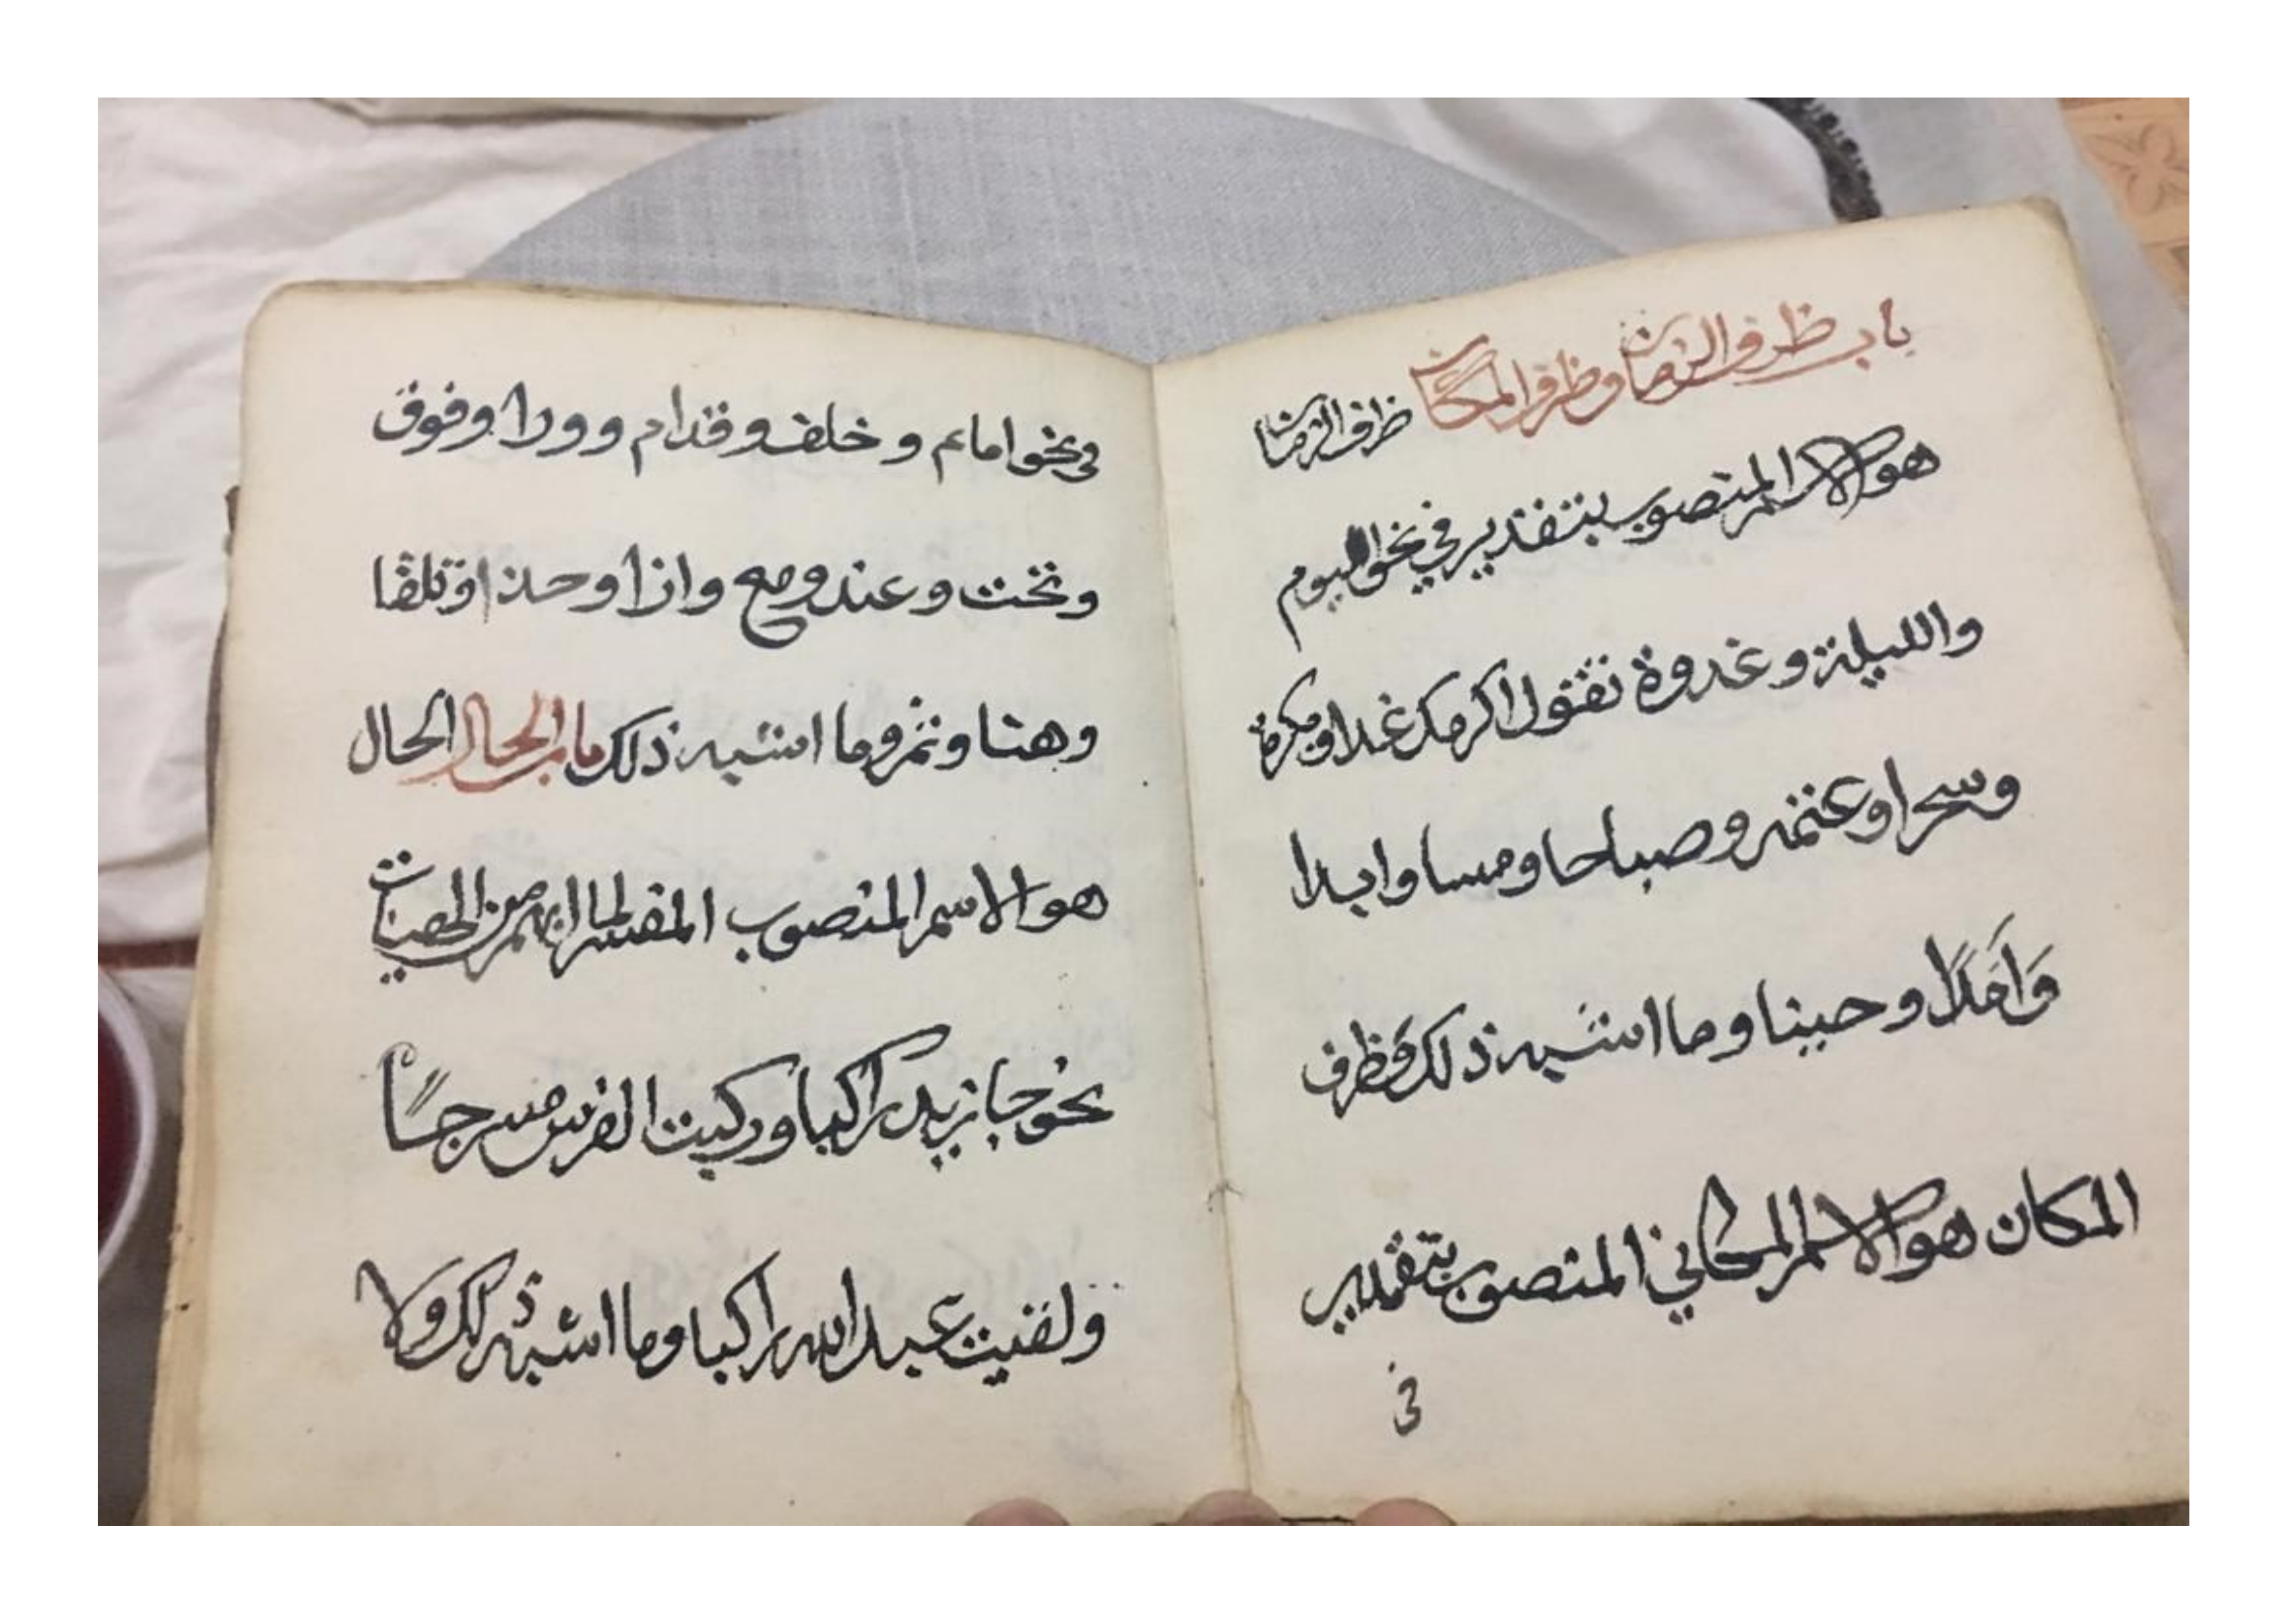 باب ظرف الزمان وظرف المكان ظرف الزمان
هو الاسم المنصوب بتقدير في نحو اليوم
والليلة وغدوة تقول اكرمك غدا وبكرة
وسحرا وعتمه وصباحا ومسا وابدا
وَاَمَدًا وحينا وما اشبه ذلك وظرف
المكان هو الاسم المكاني المنصوب بتقدير
في
في نحو امام وخلف وقدام وورا وفوق
وتحت وعند ومع وازا وحذا وتلقا
وهنا وثم وما اشبه ذلك باب الحال الحال
هو الاسم المنصوب المفسر لما انبهم من الهيات
نحو جا زيد راكبا وركبت الفرس مسرجًا
ولقيت عبد الله راكبا وما اشبه ذلك ولا